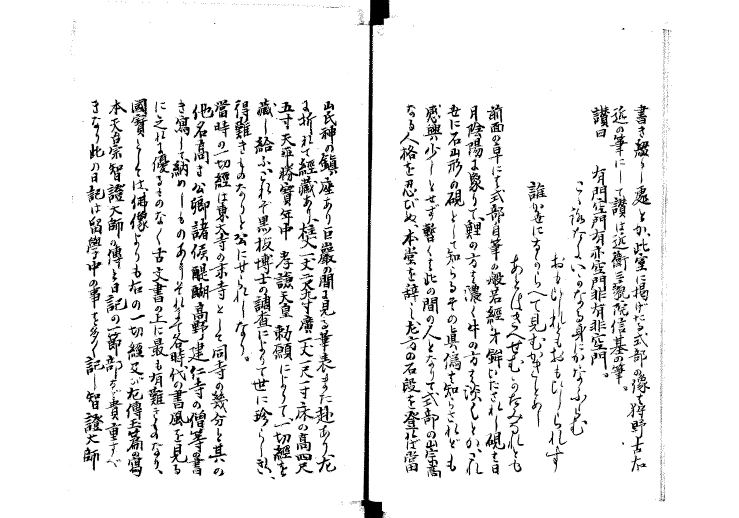 書き綴りし處とか此室に掲げたる式部の像は狩野古右
近の筆にして讃は近衛三藐院信基の筆。
讃曰　有門空門有亦空門非有非空門。
こゝろだにいかなる身にかなふらむ
おもひしれどもおもひしられず
誰か世にながらへて見むかきとめし
あとはきえせぬかたみなれども
前面の卓には式部自筆の般若經
月陰陽に象りて鯉の方は濃く牛の方は淡しとかこれ
世に石山形の硯として知らるその眞僞は知らざれども
感興少しとせず暫くは此の間の人となりて式部の
なる人格を忍びぬ、本堂を辞し左方の石段を登れば當
山氏神の鎮座あり巨巖の間に見る華表また趣あり左
に折れて經藏あり桂丈一丈二尺九寸廣一丈一尺一寸床の高四尺
五寸天平勝寶年中　孝謙天皇勅願によりて一切經を
藏し給ふこれぞ黒板博士の調査によりて世に珍らしき、
得難きものなりと公にせられしなり。
當時の一切經は東大寺の末寺として同寺の幾分と其の
他名高き公卿諸侯醍醐高野建仁寺の僧等の書
き寫し納めしものありそれにて各時代の書風を見る
に之れに優るものなく古文書の上に最も有難きものなり、
國寶としては佛像よりも右の一切經及び左傳玉篇の寫
本天台宗智證大師の傳と日記の一節部など貴重すべ
きなり此の日記は留學中の事をあら記し智證大師